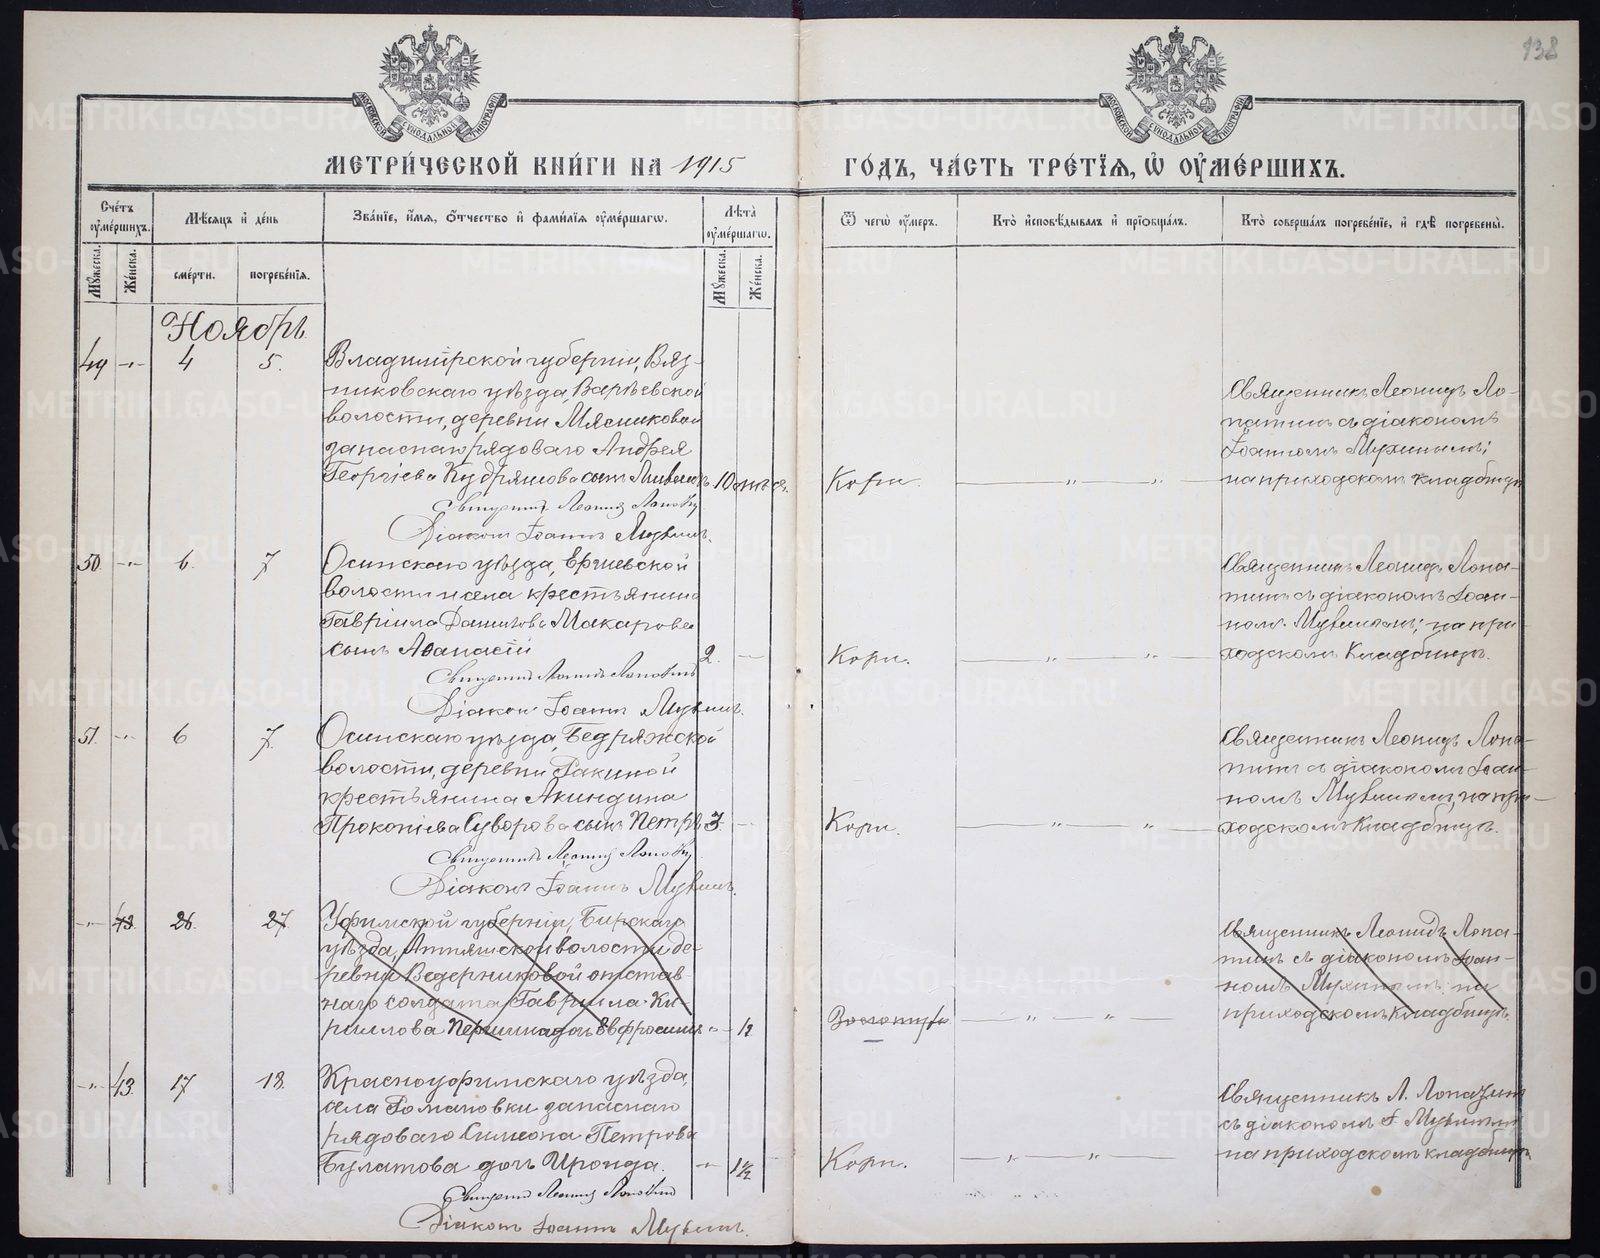 138
МОСКОВСКОЙ СѴНОДАЛЬНОЙ ТИПОГРАФІИ
МОСКОВСКОЙ СѴНОДАЛЬНОЙ ТИПОГРАФІИ
МЕТРИ́ЧЕСКОЙ КНИ́ГИ НА 1915
ГО́ДЪ, ЧА́СТЬ ТРЕ́ТЇѦ, Ѡ҆ ОУ҆МЕ́РШИХЪ.
Сче́тъ оу҆ме́ршихъ.
Мѣ́сѧцъ и҆ де́нь
Зва́нїе, и҆́мѧ, ѻ҆́тчество и҆ фами́лїѧ оу҆ме́ршагѡ.
Лѣ́та оу҆ме́ршагѡ.
Ѿ чегѡ̀ оу҆́меръ.
Кто̀ и҆сповѣ́дывалъ и҆ прїѻбща́лъ.
Кто̀ соверша́лъ погребе́нїе, и҆ гдѣ̀ погребены̀.
Мꙋ́жеска.
Же́нска.
сме́рти.
погребе́нїѧ.
Мꙋ́жеска.
Же́нска.
Ноябрь.
49 -"- 4 5. Владимірской губерніи, Вяз-
никовскаго уѣзда, Варѣевской
волости, деревни Мясниковой
запаснаго рядового Андрея
Георгіева Кудряшова сынъ 10
Священникъ Леонидъ Лопатинъ
Діаконъ Іоаннъ Мухинъ.
Кори. " "
Священникъ Леонидъ Ло-
патинъ съ діакономъ
Іоанномъ Мухинымъ;
на приходскомъ кладбищѣ
50. -"- 6. 7 Осинскаго уѣзда, Ершевской
волости и села крестьянина
Гавріила Данилова Макарова
сынъ Аѳанасій 2. —
Священникъ Леонидъ Лопатинъ
Діаконъ Іоаннъ Мухинъ.
Кори. " "
Священникъ Леонидъ Лопа-
тинъ съ діакономъ Іоан-
номъ Мухинымъ; на при-
ходскомъ кладбищѣ.
51. -"- 6 7. Осинскаго уѣзда, Бедряжской
волости, деревни Ракиной
крестьянина Акиндина
Прокопіева Суворова сынъ Петръ 3. —
Священникъ Леонидъ Лопатинъ
Діаконъ Іоаннъ Мухинъ.
Кори. " "
Священникъ Леонидъ Лопа-
тинъ съ діакономъ Іоан-
номъ Мухинымъ, на при-
ходскомъ кладбищѣ.
-"- 43. 26. 27 Уфимской губерніи, Бирскаго
уѣзда, волости де-
ревни Ведерниковой отстав-
наго солдата Гавріила Ки-
риллова дочь Евфросинія -"- 12
" "
Священникъ Леонидъ Лопа-
тинъ съ діакономъ Іоан-
номъ Мухинымъ; на
приходскомъ кладбищѣ.
-"- 43. 17 18. Красноуфимскаго уѣзда,
села Романовки запаснаго
рядового Симеона Петрова
Булатова дочь Ироида. -"- 1½
Священникъ Леонидъ Лопатинъ
Діаконъ Іоаннъ Мухинъ.
Кори. " "
Священникъ Л. Лопатинъ
съ діакономъ І. Мухинымъ
на приходскомъ кладбищѣ
METRIKI.GASO-URAL.RU